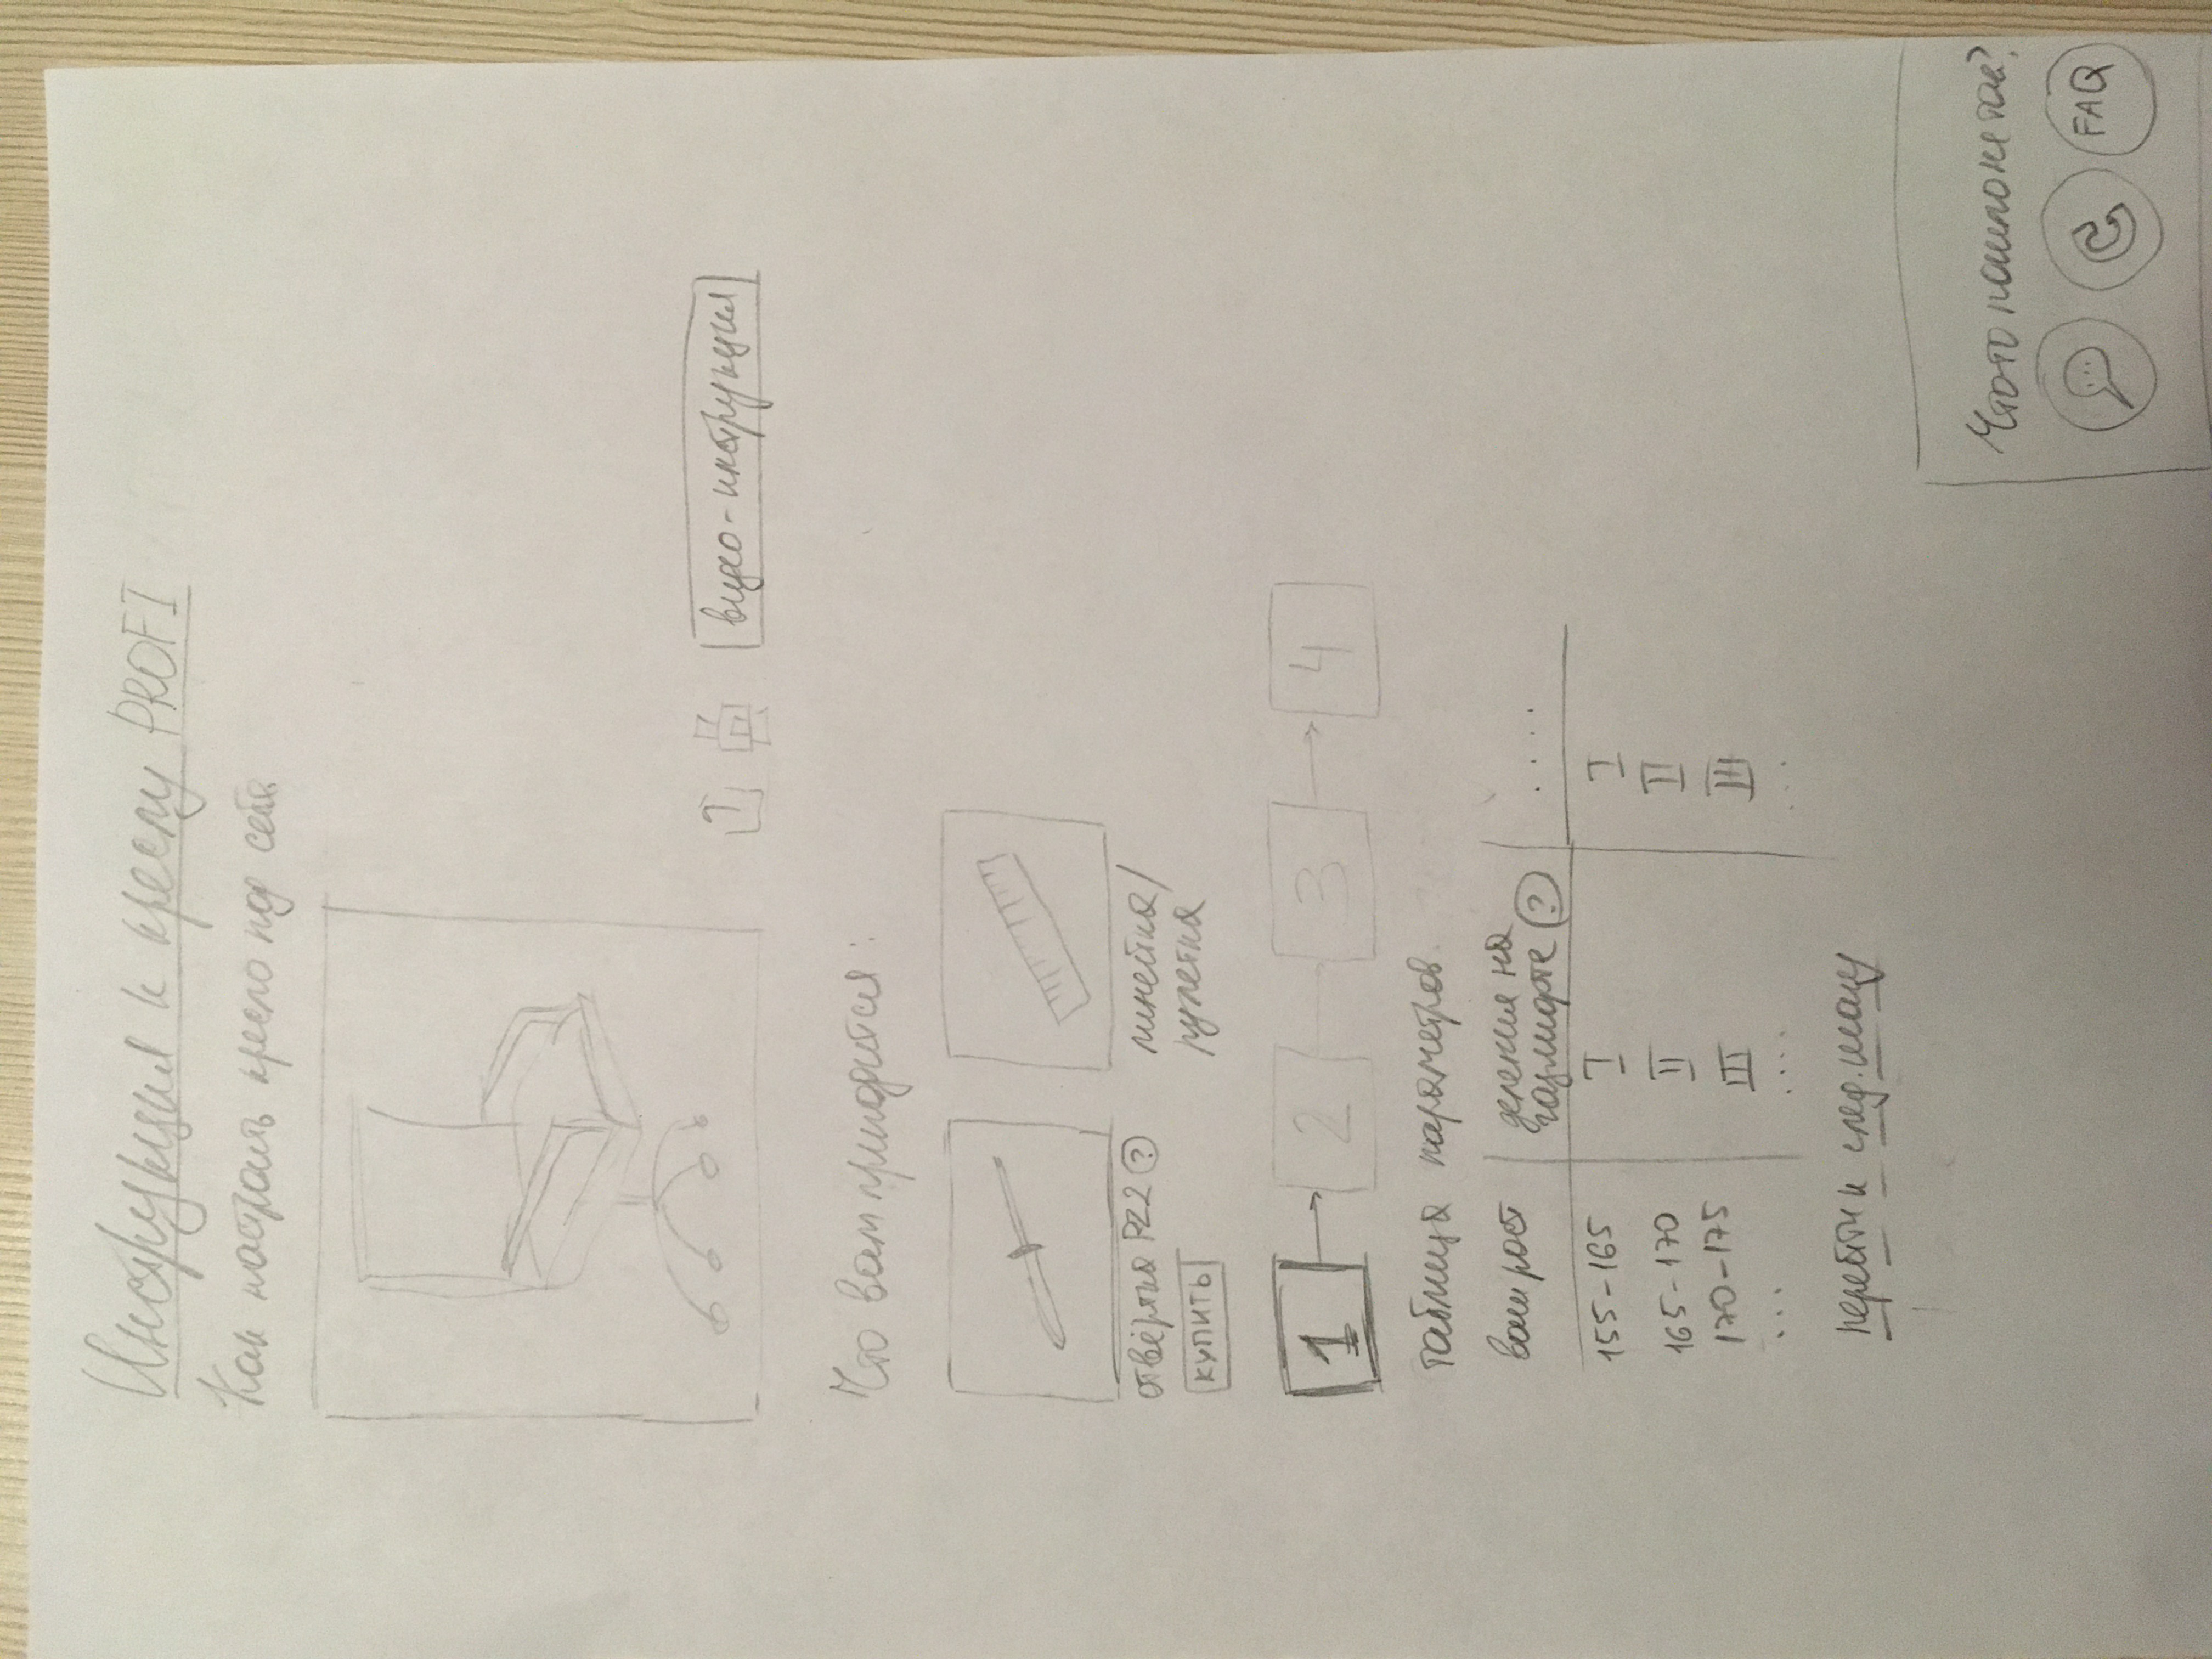 Инструкция к креслу PROFI
Как настроить кресло под себя
видео-инструкция
Что вам пригодится:
отвёртка PZ2 ?
КУПИТЬ
линейка/
рулетка
1
2
3
4
таблица параметров
ваш рост
деления на
газлифте ?
....
155-165 I I
165-170 II II
170-175 III III
... .... ...
перейти к след. шагу
Что-то пошло не так?
FAQ